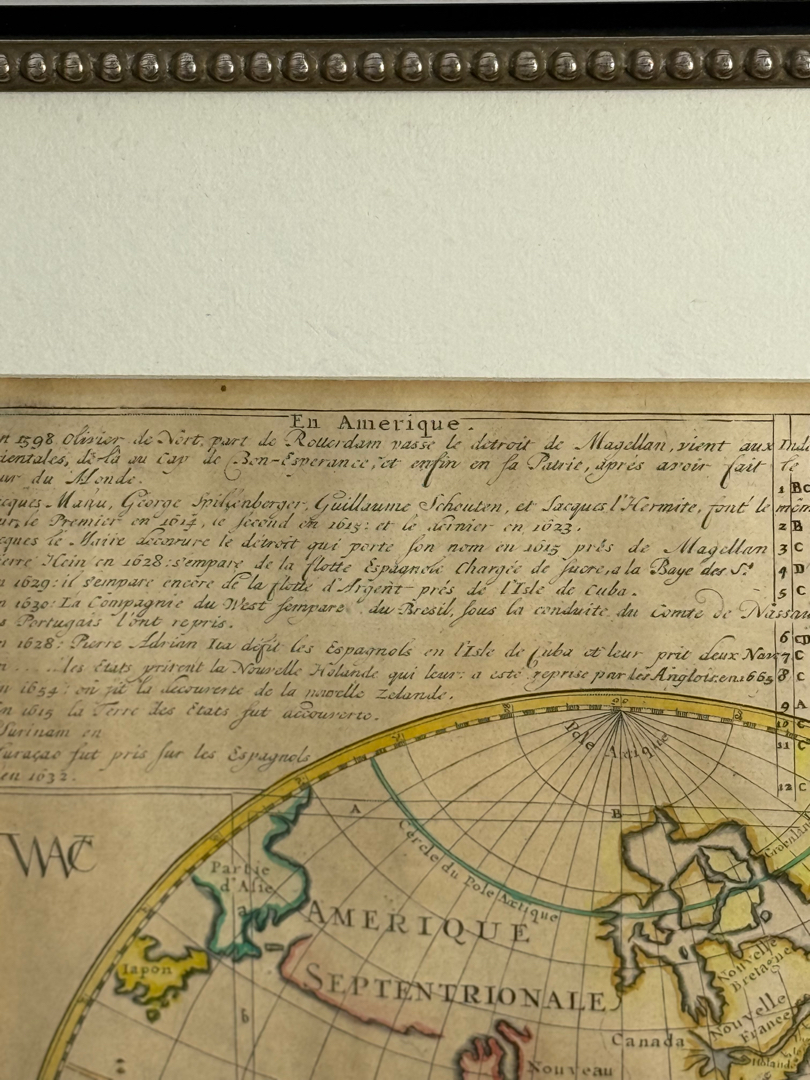 En Amerique.
n 1598 Olivier de Nort, part de Rotterdam passe le detroit de Magellan, vient aux
ientales, de-là au Cap de Bon-Esperance, et enfin en sa Patrie, aprés avoir fait le
ur du Monde.
cques Mahu, George Spilzenberger, Guillaume Schouten, et Jacques l'Hermite, font le mém
ur, le Premier en 1614, le second en 1615: et le dernier en 1623.
cques le Maire decouvre le détroit qui porte son nom en 1615 prés de Magellan
erre Hein en 1628: s'empare de la flotte Espagnole Chargée de sucre, a la Baye des Sts
n 1629: il s'empare encore de la flotte d'Argent prés de l'Isle de Cuba.
n 1630: La Compagnie du West s'empare du Bresil, sous la conduite du Comte de Nassau
s Portugais l'ont repris.
n 1628: Pierre Adrian Ita défit les Espagnols en l'Isle de Cuba et leur prit deux Nav
n .... les Etats prirent la Nouvelle Holande qui leur a esté reprise par les Anglois en 1665
n 1654: on fit la découverte de la nouvelle Zelande.
n 1615 la Terre des Etats fut découverte.
Surinam en
Curaçao fut pris sur les Espagnols
en 1632.
Inde
1 Bc
2 B
3 C
4 D
5 C
6 CD
7 C
8 C
9 A
10 C
11 C
12 C
WC
Pole Artique
A
B
Cercle du Pole Artique
Groenland
Partie
d'Asie
a
AMERIQUE
SEPTENTRIONALE
Iapon
b
Nouvelle
Bretagne
Nouvelle
France
Canada
Holande
Nouveau